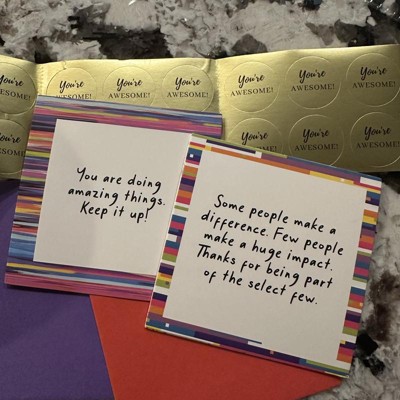 You're
AWESOME!
You're
AWESOME!
You're
AWESOME!
You're
AWESOME!
You're
AWESOME!
You're
AWESOME!
You're
AWESOME!
You're
AWESOME!
You're
AWESOME!
You are doing
amazing things.
Keep it up!
Some people make a
difference. Few people
make a huge impact.
Thanks for being part
of the select few.